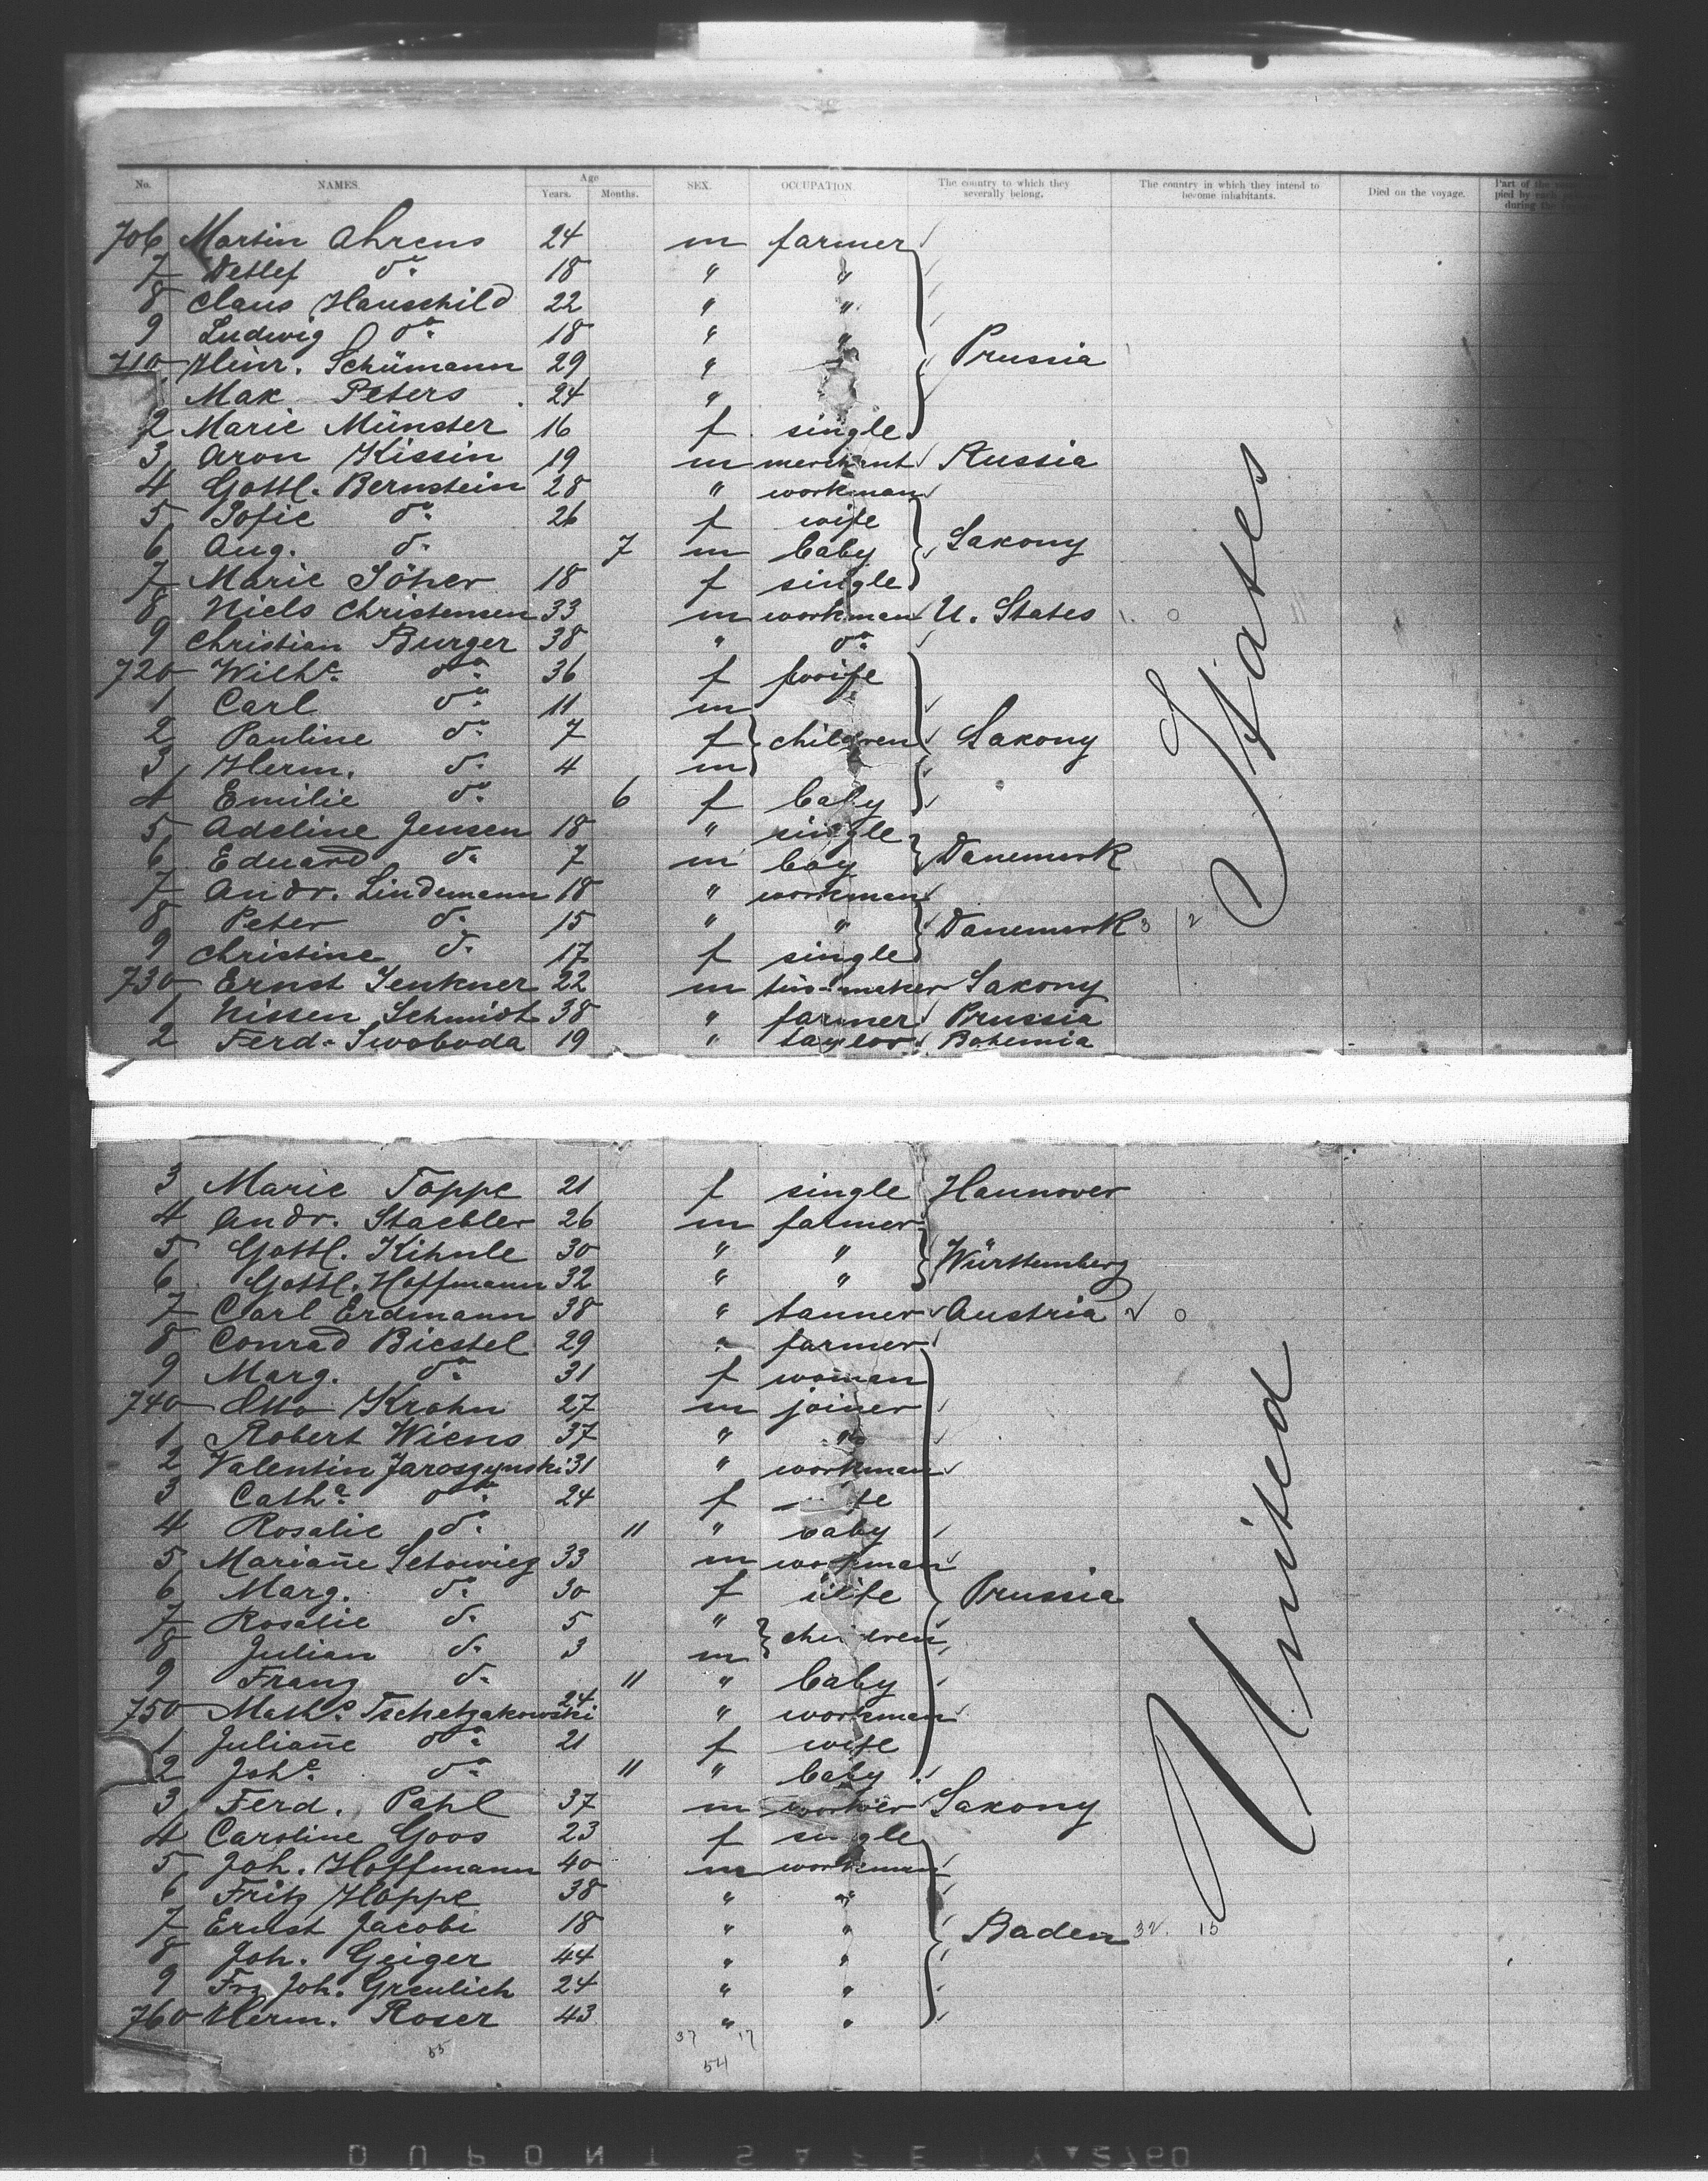 No. NAMES. Age Years. Months. SEX. OCCUPATION The country to which they severally belong. The country in which they intend to become inhabitants. Died on the voyage. Part of the
706 Martin Ahrens 24 m farmer
7 Detlef do. 18 " "
8 Claus Hauschild 22 " "
9 Ludwig do. 18 " "
710 Heinr. Schümann 29 " " Prussia
Max Peters 24 "
2 Marie Münster 16 f single
3 Aron Kissin 19 m merchant Russia
4 Gottl. Bernstein 28 " workman
5 Sofie do. 26 f wife
6 Aug. do. 7 m baby Saxony
7 Marie Söher 18 f single
8 Niels Christensen 33 m workman U. States
9 Christian Burger 38 " do.
720 Wilhe. do. 36 f wife
1 Carl do. 11 m
2 Pauline do. 7 f children Saxony
3 Herm. do. 4 m
4 Emilie do. 6 f baby
5 Adeline Jensen 18 " single
6 Eduard do. 7 m boy Danemark
7 Andr. Lindemann 18 " workman
8 Peter do. 15 " " Danemark
9 Christine do. 17 f single
730 Ernst Jenkner 22 m Saxony
1 Nissen Schmidt 38 " farmer Prussia
2 Ferd. Swoboda 19 " taylor Bohemia
3 Marie Toppe 21 f single Hannover
4 Andr. Staebler 26 m farmer
5 Gottl. Kihnle 30 " " Württemberg
6 Gottl. Hoffmann 32 " "
7 Carl Erdmann 38 " tanner Austria
8 Conrad Biestel 29 " farmer
9 Marg. do. 31 f woman
740 Otto Krohn 27 m joiner
1 Robert Wiens 37 " "
2 Valentin Jaroszynski 31 " workman
3 Catha. do. 24 f
4 Rosalie do. 11 " baby
5 Mariañe 33 m workman
6 Marg. do. 30 f wife Prussia
7 Rosalie do. 5 " children
8 Julian do. 3 m
9 Franz do. 11 " baby
750 Maths. Tschetzakowski 24 " workman
1 Juliañe do. 21 f wife
2 Johe. do. 11 " baby
3 Ferd. Pahl 37 m worker Saxony
4 Caroline Goos 23 f single
5 Joh. Hoffmann 40 m workman
6 Fritz Hoppe 38 " "
7 Ernst Jacobi 18 " " Baden
8 Joh. Geiger 44 " "
9 Frz Joh. Greulich 24 " "
760 Herm. Roser 43 " "
37 17
55 54
United States
DUPONT SAFETY